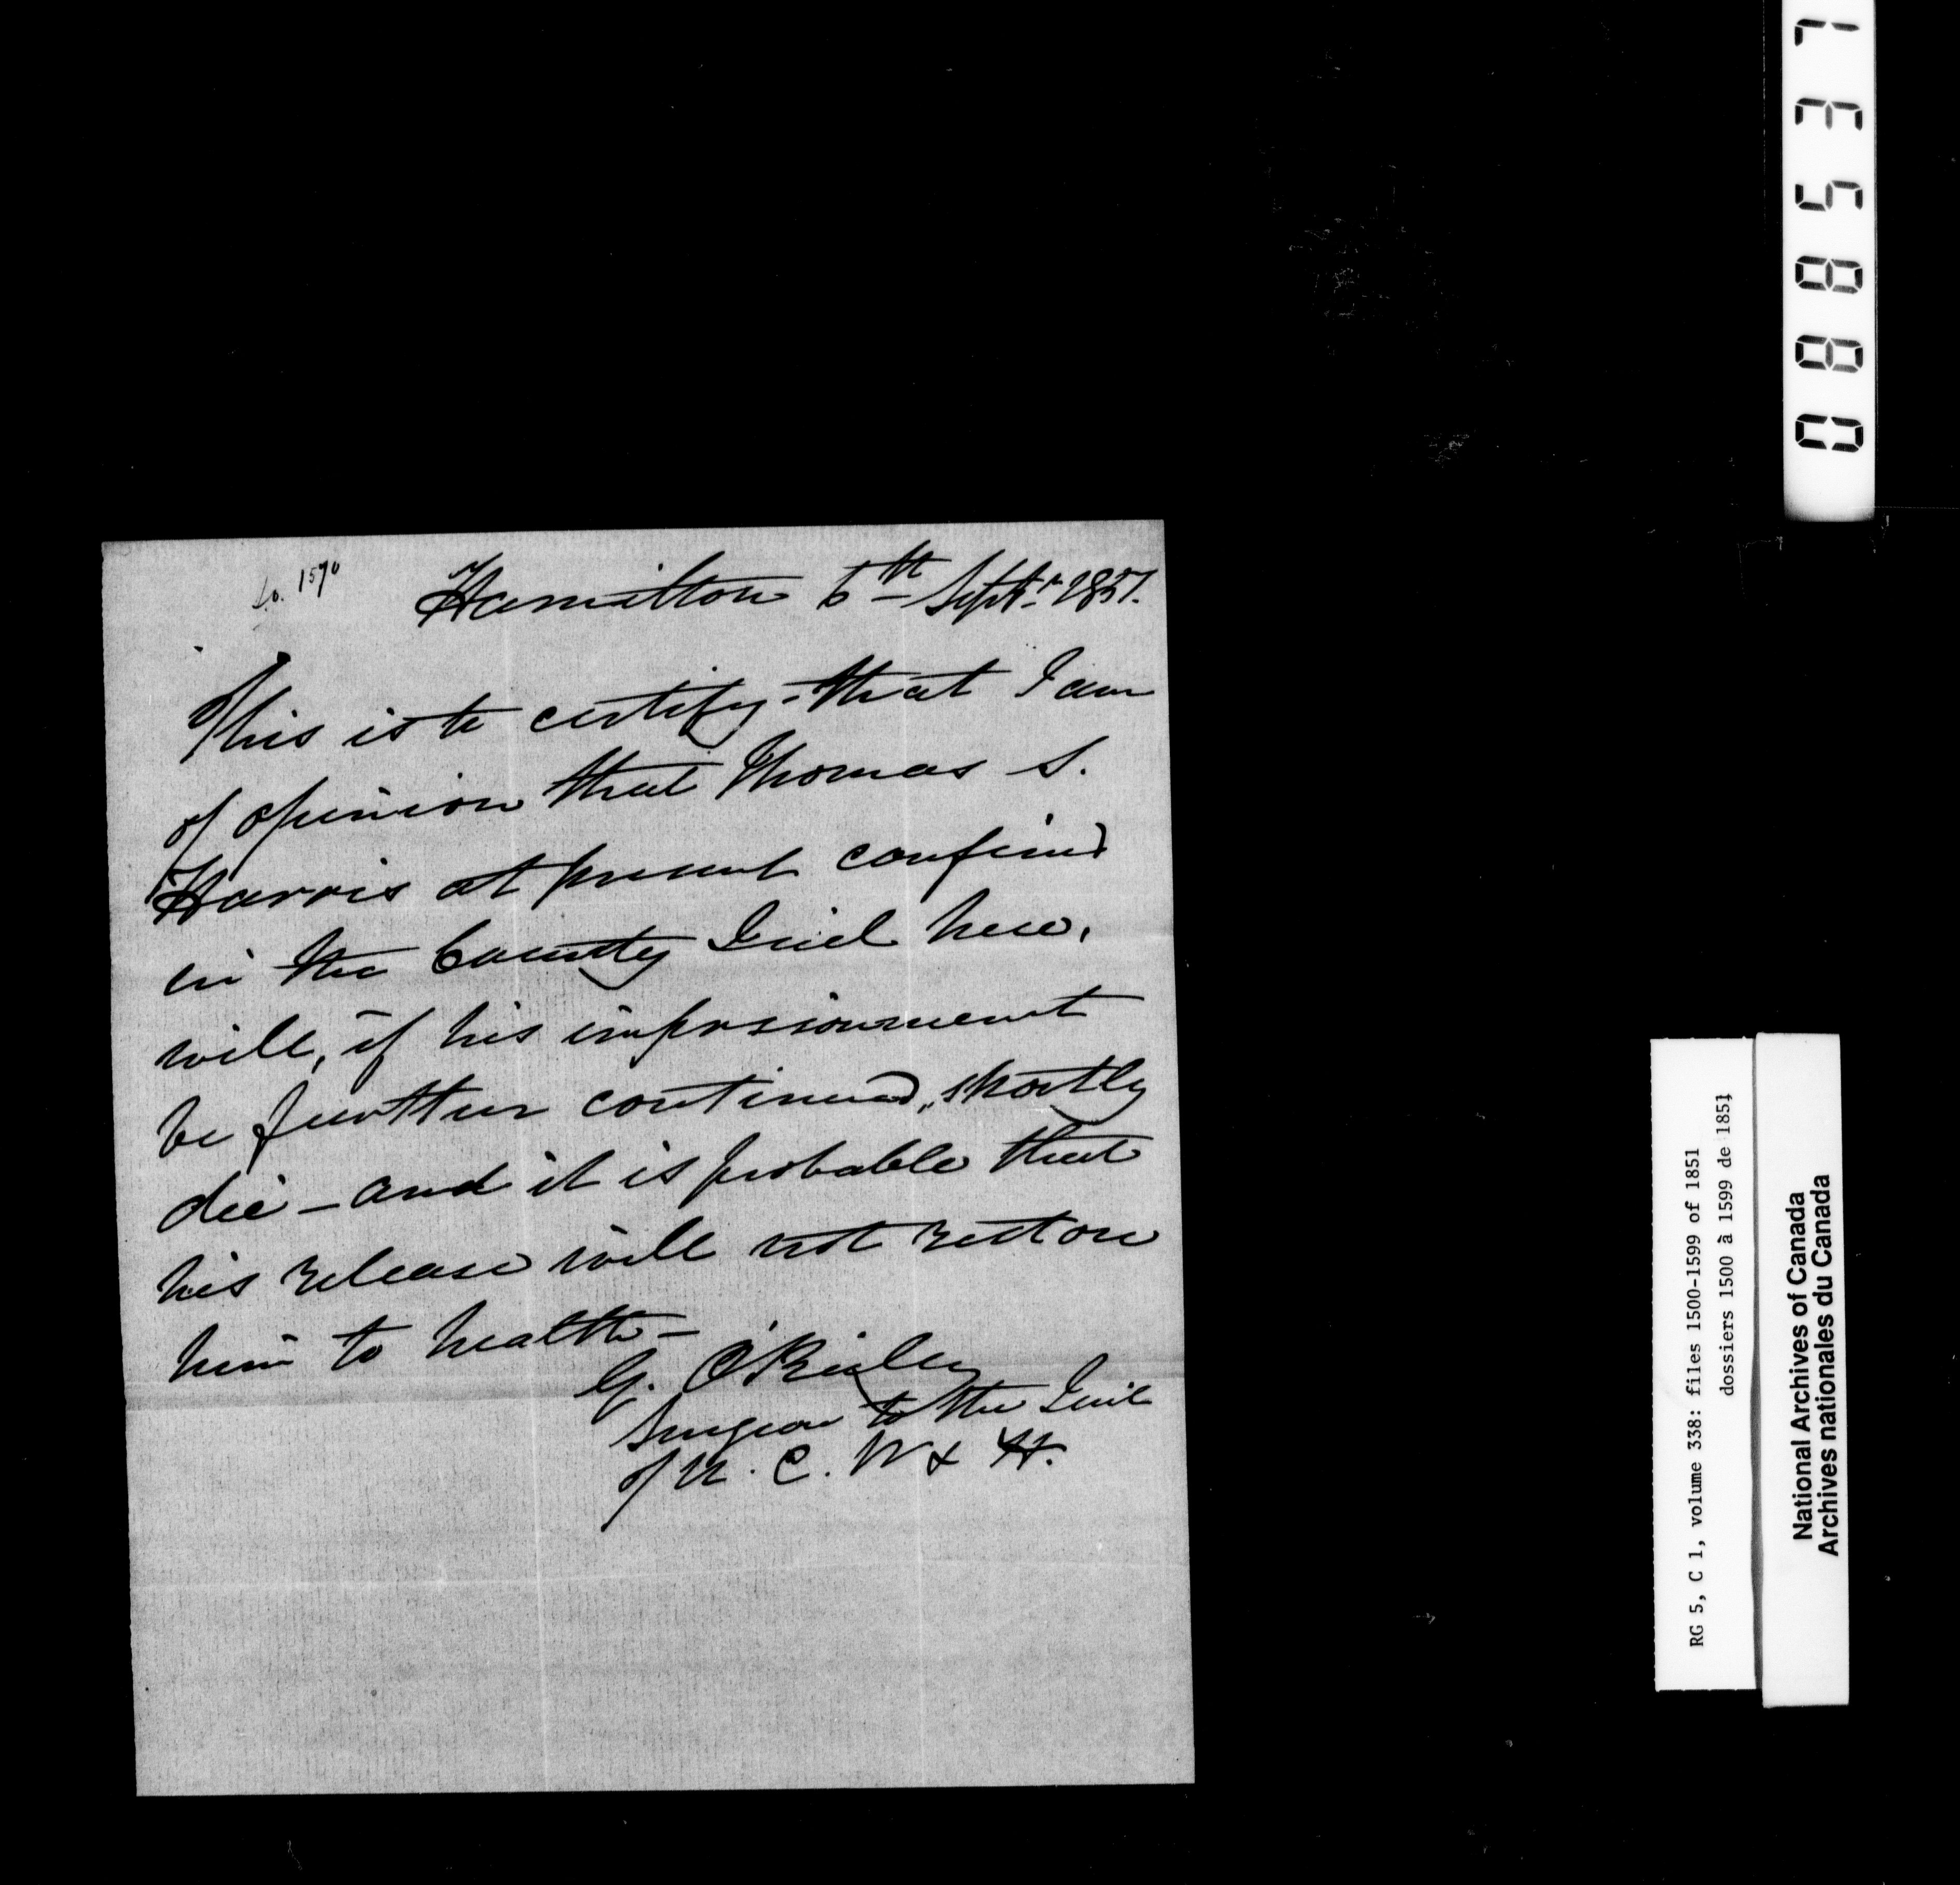 1570
Hamilton 6th Septr. 1851.
This is to certify that I am
of opinion that Thomas S.
Harris at present confined
in the County Gaol here,
will, if his imprisionment
be further continued, shortly
die - and it is probable that
his release will not restore
him to health -
G. O'Reiley
Surgeon to the Gaol
of U. C. W & H.
088537
RG 5, C 1, volume 338: files 1500-1599 of 1851
dossiers 1500 à 1599 de 1851
National Archives of Canada
Archives nationales du Canada